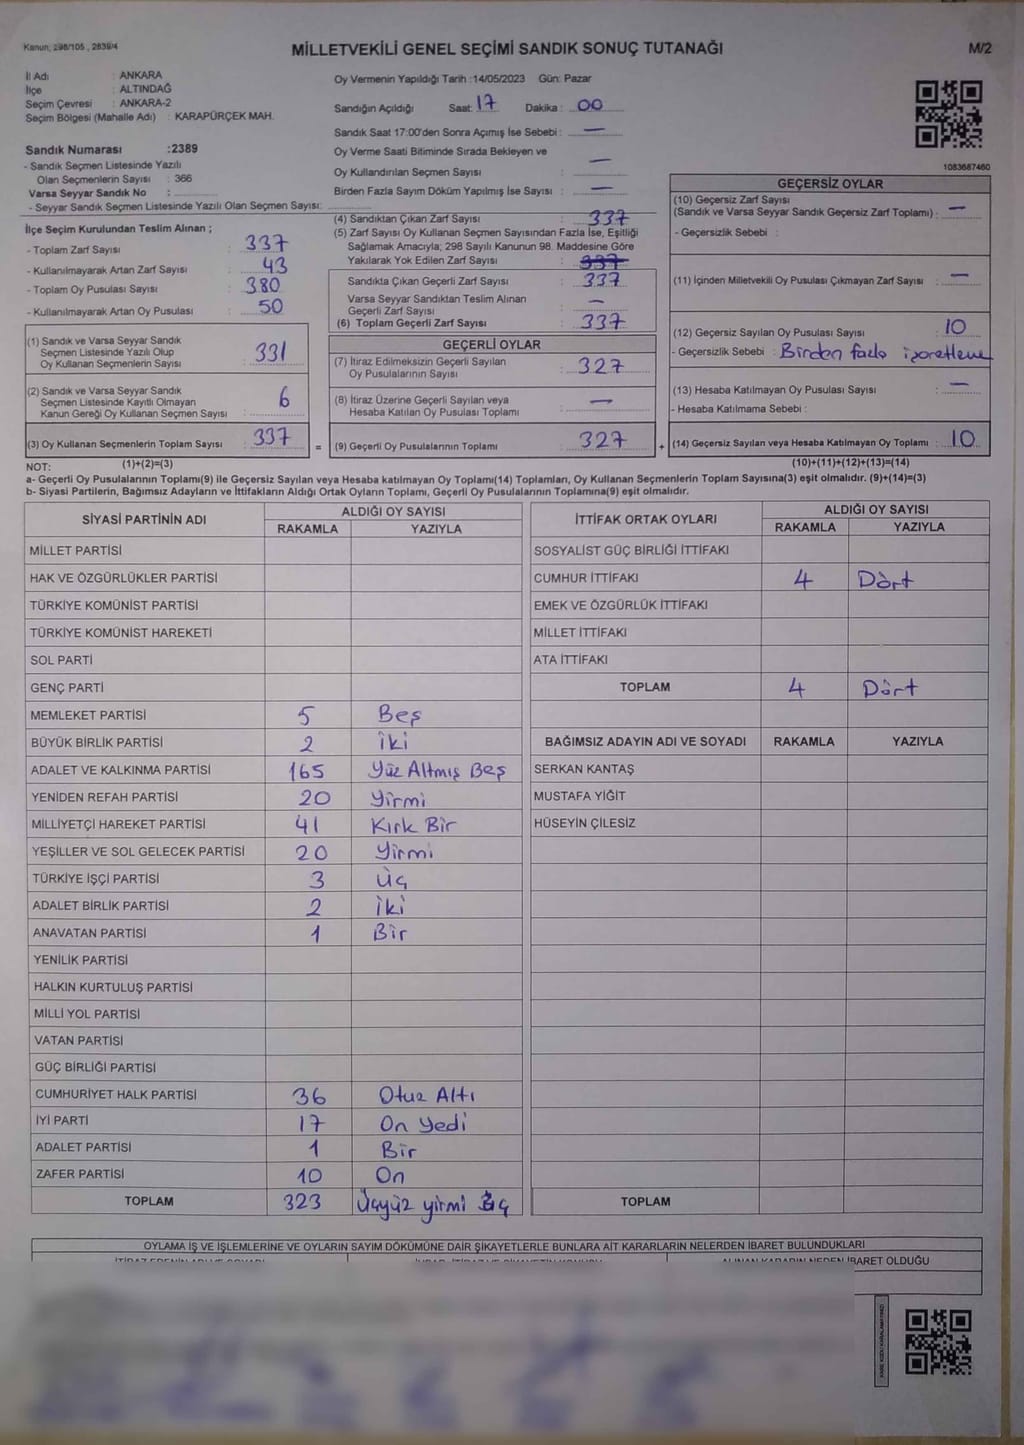 Kanun, 298/105 , 2839/4
MİLLETVEKİLİ GENEL SEÇİMİ SANDIK SONUÇ TUTANAĞI
M/2
İl Adı : ANKARA
İlçe : ALTINDAĞ
Seçim Çevresi : ANKARA-2
Seçim Bölgesi (Mahalle Adı) : KARAPÜRÇEK MAH.
Sandık Numarası :2389
- Sandık Seçmen Listesinde Yazılı
Olan Seçmenlerin Sayısı : 366
Varsa Seyyar Sandık No :
- Seyyar Sandık Seçmen Listesinde Yazılı Olan Seçmen Sayısı:
Oy Vermenin Yapıldığı Tarih :14/05/2023 Gün: Pazar
Sandığın Açıldığı Saat: 17 Dakika : 00
Sandık Saat 17:00'den Sonra Açımış İse Sebebi : —
Oy Verme Saati Bitiminde Sırada Bekleyen ve
Oy Kullandırılan Seçmen Sayısı : —
Birden Fazla Sayım Döküm Yapılmış İse Sayısı : —
1083687460
İlçe Seçim Kurulundan Teslim Alınan ;
- Toplam Zarf Sayısı : 337
- Kullanılmayarak Artan Zarf Sayısı : 43
- Toplam Oy Pusulası Sayısı : 380
- Kullanılmayarak Artan Oy Pusulası : 50
(1) Sandık ve Varsa Seyyar Sandık
Seçmen Listesinde Yazılı Olup
Oy Kullanan Seçmenlerin Sayısı : 331
(2) Sandık ve Varsa Seyyar Sandık
Seçmen Listesinde Kayıtlı Olmayan
Kanun Gereği Oy Kullanan Seçmen Sayısı : 6
(3) Oy Kullanan Seçmenlerin Toplam Sayısı : 337
(1)+(2)=(3)
(4) Sandıktan Çıkan Zarf Sayısı : 337
(5) Zarf Sayısı Oy Kullanan Seçmen Sayısından Fazla İse, Eşitliği
Sağlamak Amacıyla; 298 Sayılı Kanunun 98. Maddesine Göre
Yakılarak Yok Edilen Zarf Sayısı : 337
Sandıkta Çıkan Geçerli Zarf Sayısı : 337
Varsa Seyyar Sandıktan Teslim Alınan
Geçerli Zarf Sayısı : —
(6) Toplam Geçerli Zarf Sayısı : 337
GEÇERLİ OYLAR
(7) İtiraz Edilmeksizin Geçerli Sayılan
Oy Pusulalarının Sayısı : 327
(8) İtiraz Üzerine Geçerli Sayılan veya
Hesaba Katılan Oy Pusulası Toplamı : —
= (9) Geçerli Oy Pusulalarının Toplamı : 327
GEÇERSİZ OYLAR
(10) Geçersiz Zarf Sayısı
(Sandık ve Varsa Seyyar Sandık Geçersiz Zarf Toplamı) : —
- Geçersizlik Sebebi :
(11) İçinden Milletvekili Oy Pusulası Çıkmayan Zarf Sayısı : —
(12) Geçersiz Sayılan Oy Pusulası Sayısı : 10
- Geçersizlik Sebebi : Birden fazla işaretleme
(13) Hesaba Katılmayan Oy Pusulası Sayısı : —
- Hesaba Katılmama Sebebi :
+ (14) Geçersiz Sayılan veya Hesaba Katılmayan Oy Toplamı : 10
(10)+(11)+(12)+(13)=(14)
NOT:
a- Geçerli Oy Pusulalarının Toplamı(9) ile Geçersiz Sayılan veya Hesaba katılmayan Oy Toplamı(14) Toplamları, Oy Kullanan Seçmenlerin Toplam Sayısına(3) eşit olmalıdır. (9)+(14)=(3)
b- Siyasi Partilerin, Bağımsız Adayların ve İttifakların Aldığı Ortak Oyların Toplamı, Geçerli Oy Pusulalarının Toplamına(9) eşit olmalıdır.
SİYASİ PARTİNİN ADI ALDIĞI OY SAYISI
RAKAMLA YAZIYLA
MİLLET PARTİSİ
HAK VE ÖZGÜRLÜKLER PARTİSİ
TÜRKİYE KOMÜNİST PARTİSİ
TÜRKİYE KOMÜNİST HAREKETİ
SOL PARTİ
GENÇ PARTİ
MEMLEKET PARTİSİ 5 Beş
BÜYÜK BİRLİK PARTİSİ 2 İki
ADALET VE KALKINMA PARTİSİ 165 Yüz Altmış Beş
YENİDEN REFAH PARTİSİ 20 Yirmi
MİLLİYETÇİ HAREKET PARTİSİ 41 Kırk Bir
YEŞİLLER VE SOL GELECEK PARTİSİ 20 Yirmi
TÜRKİYE İŞÇİ PARTİSİ 3 Üç
ADALET BİRLİK PARTİSİ 2 İki
ANAVATAN PARTİSİ 1 Bir
YENİLİK PARTİSİ
HALKIN KURTULUŞ PARTİSİ
MİLLİ YOL PARTİSİ
VATAN PARTİSİ
GÜÇ BİRLİĞİ PARTİSİ
CUMHURİYET HALK PARTİSİ 36 Otuz Altı
İYİ PARTİ 17 On Yedi
ADALET PARTİSİ 1 Bir
ZAFER PARTİSİ 10 On
TOPLAM 323 Üçyüz yirmi Üç
İTTİFAK ORTAK OYLARI ALDIĞI OY SAYISI
RAKAMLA YAZIYLA
SOSYALİST GÜÇ BİRLİĞİ İTTİFAKI
CUMHUR İTTİFAKI 4 Dört
EMEK VE ÖZGÜRLÜK İTTİFAKI
MİLLET İTTİFAKI
ATA İTTİFAKI
TOPLAM 4 Dört
BAĞIMSIZ ADAYIN ADI VE SOYADI RAKAMLA YAZIYLA
SERKAN KANTAŞ
MUSTAFA YİĞİT
HÜSEYİN ÇİLESİZ
TOPLAM
OYLAMA İŞ VE İŞLEMLERİNE VE OYLARIN SAYIM DÖKÜMÜNE DAİR ŞİKAYETLERLE BUNLARA AİT KARARLARIN NELERDEN İBARET BULUNDUKLARI
İBARET OLDUĞU